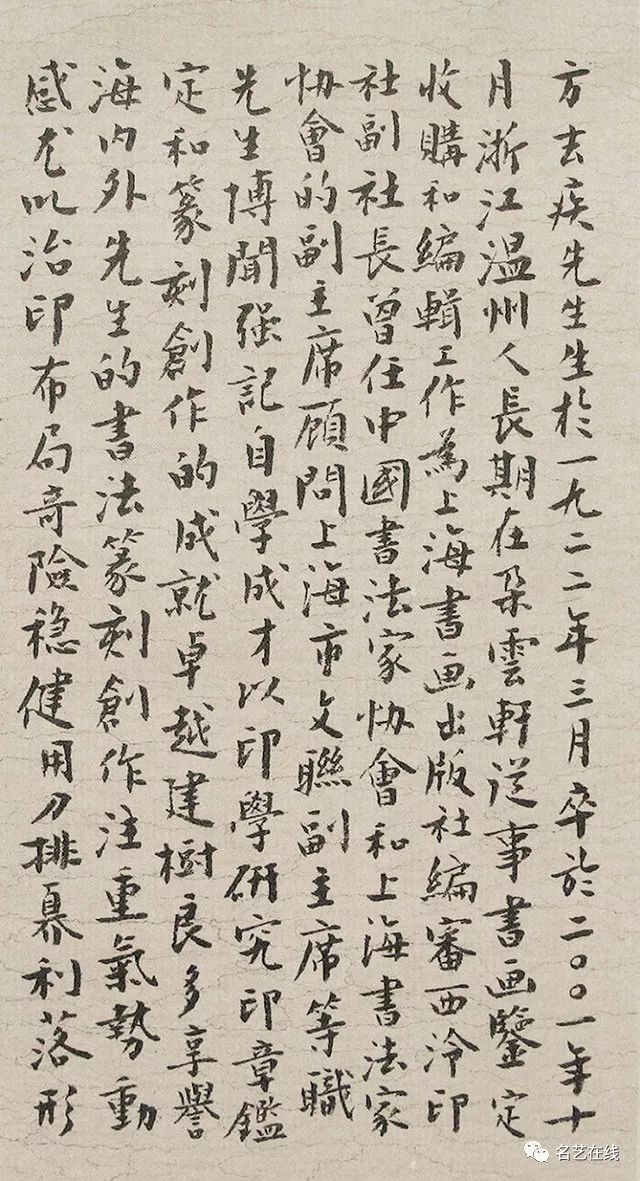 方去疾先生生於一九二二年三月卒於二〇〇一年十
月浙江温州人長期在朵雲軒從事書画鑒定
收購和編輯工作為上海書画出版社編審西泠印
社副社長曾任中國書法家协會和上海書法家
协會的副主席顧問上海市文聯副主席等職
先生博聞强記自學成才以印學研究印章鑑
定和篆刻創作的成就卓越建樹良多享譽
海内外先生的書法篆刻創作注重氣勢動
感尤以治印布局奇險稳健用刀排奡利落形
名艺在线